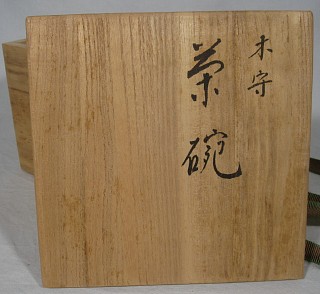 木守
茶碗